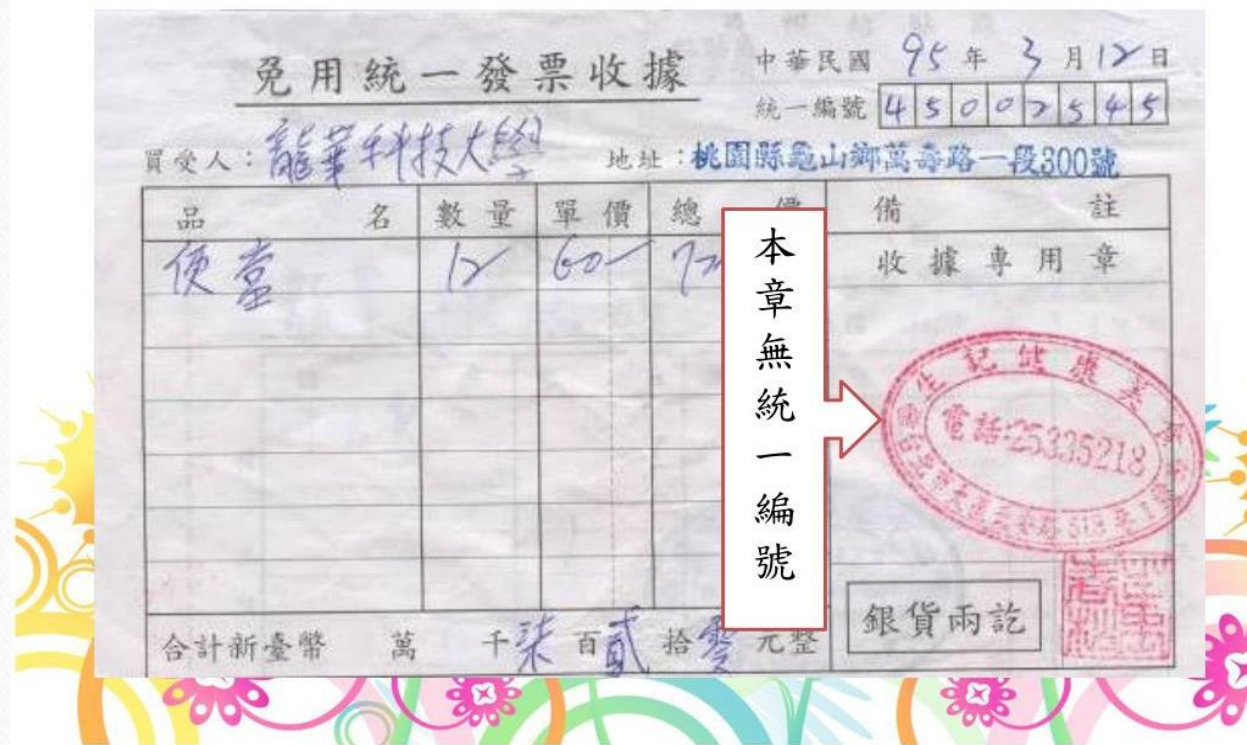 免用統一發票收據
中華民國 95 年 3 月 12 日
統一編號 45002545
買受人：龍華科技大學 地址：桃園縣龜山鄉萬壽路一段300號
品名 數量 單價 總價 備註
便當 12 60 72
收據專用章
本章無統一編號
生記健康美
電話:25335218
合計新臺幣 萬 千 柒 百 貳 拾 零 元整
銀貨兩訖